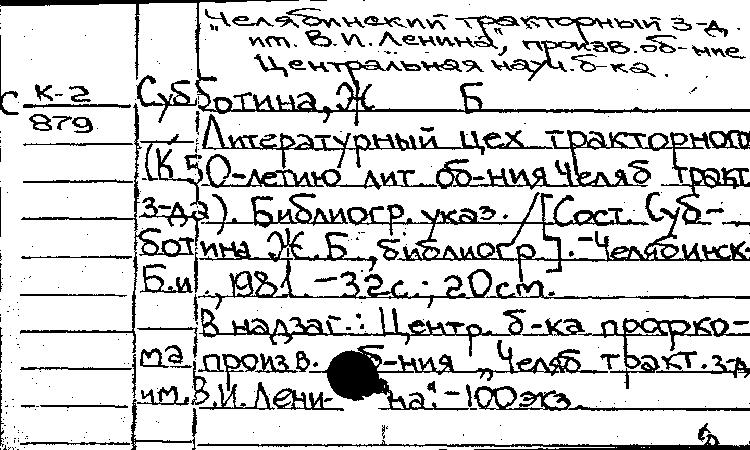 "Челябинский тракторный з-д
им. В.И. Ленина", произв. об-ние
Центральная науч. б-ка.
С К-2
879
Субботина, Ж Б
Литературный цех тракторного
(К 50-летию лит об-ния Челяб тракт
з-да). Библиогр. указ. / [Сост. Суб-
ботина Ж.Б., библиогр]. - Челябинск.
Б.и., 1981. - 32с.; 20см.
В надзаг.: Центр. б-ка профко-
ма произв. б-ния „Челяб тракт. з-д
им. В.И. Лени- на". - 100экз.